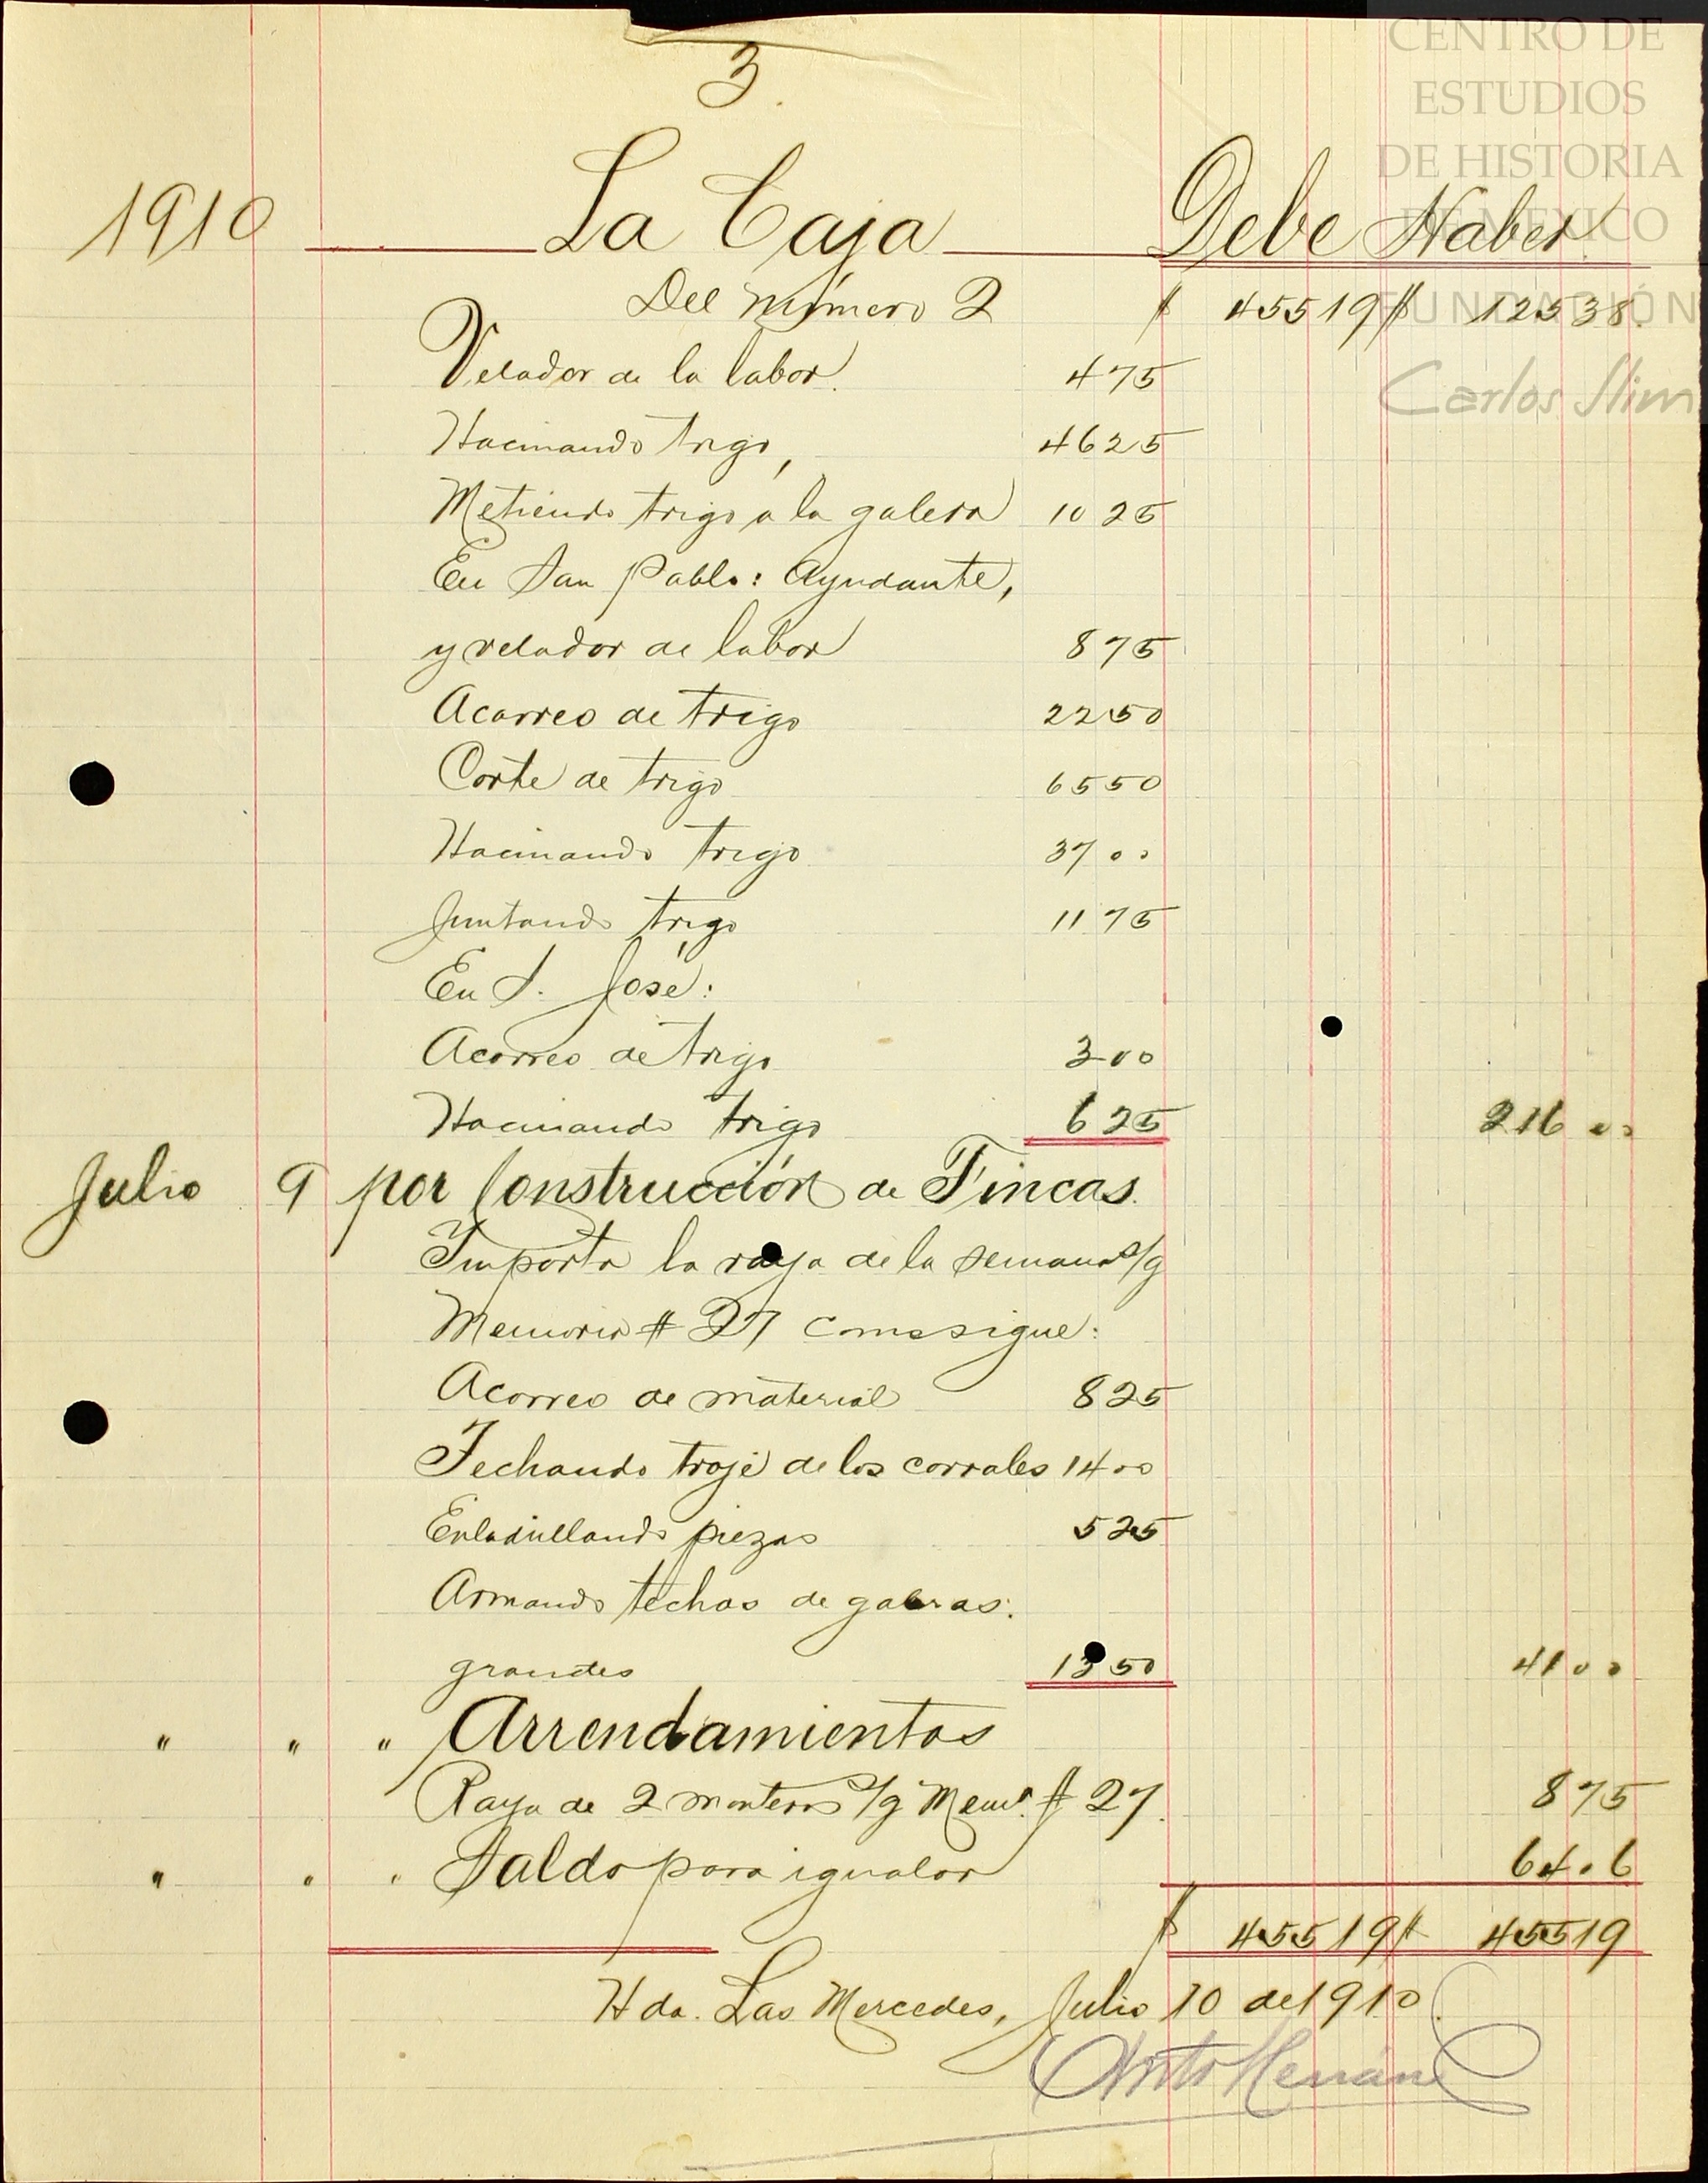 CENTRO DE
ESTUDIOS
DE HISTORIA
DE MÉXICO
FUNDACIÓN
Carlos Slim
3.
1910 La Caja Debe Haber
Del número 2 $ 455 19 $ 125 38.
Velador de la labor. 4 75
Hacinando trigo, 46 25
Metiendo trigo a la galera 10 25
En San Pablo: Ayudante,
y velador de labor 8 75
Acarreo de trigo 22 50
Corte de trigo 65 50
Hacinando trigo 37 00
Juntando trigo 11 75
En S. José:
Acarreo de trigo 3 00
Hacinando trigo 6 25 216 00
Julio 9 por Construcción de Fincas.
Importa la raya de la semana s/g
Memoria # 27 como sigue:
Acarreo de material 8 25
Techando troje de los corrales 14 00
Enladrillando piezas 5 25
Armando techos de galeras:
grandes 13 50 41 00
" " " Arrendamientos
Raya de 2 monteros s/g Mema. # 27. 8 75
" " " Saldo para igualar 64 06
$ 455 19 $ 455 19
Hda. Las Mercedes, Julio 10 de 1910.